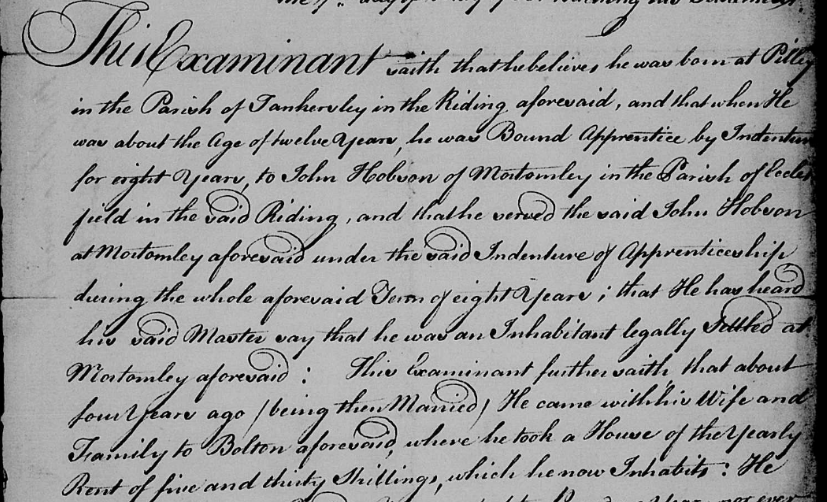 This Examinant saith that he believes he was born at Pilley
in the Parish of Tankersley in the Riding aforesaid, and that when He
was about the Age of twelve Years, he was Bound Apprentice by Indenture
for eight Years, to John Hobson of Mortomley in the Parish of Eccles
field in the said Riding, and that he served the said John Hobson
at Mortomley aforesaid under the said Indenture of Apprenticeship
during the whole aforesaid Term of eight Years; that He has heard
his said Master say that he was an Inhabitant legally Settled at
Mortomley aforesaid: This Examinant further saith, that about
four Years ago (being then Married) He came with his Wife and
Family to Bolton aforesaid, where he took a House of the Yearly
Rent of five and thirty Shillings, which he now Inhabits: He